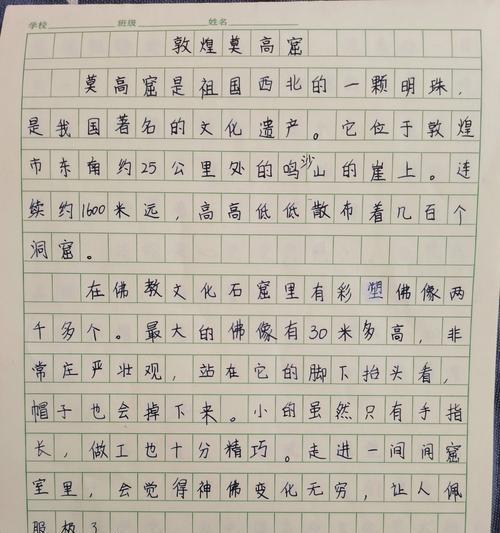 学校 班级 姓名
敦煌莫高窟
莫高窟是祖国西北的一颗明珠，
是我国著名的文化遗产。它位于敦煌
市东南约25公里处的鸣沙山的崖上。连
续约1600米远，高高低低散布着几百个
洞窟。
在佛教文化石窟里有彩塑佛像两
千多个。最大的佛像有30米多高，非
常庄严壮观，站在它的脚下抬头看，
帽子也会掉下来。小的虽然只有手指
长，做工也十分精巧。走进一间间窟
室里，会觉得神佛变化无穷，让人佩
服极了